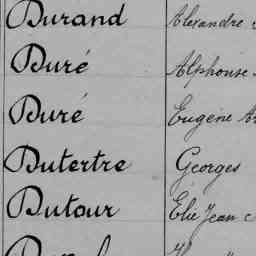 Durand Alexandre
Duré Alphonse
Duré Eugène
Dutertre Georges
Dutour Élie Jean